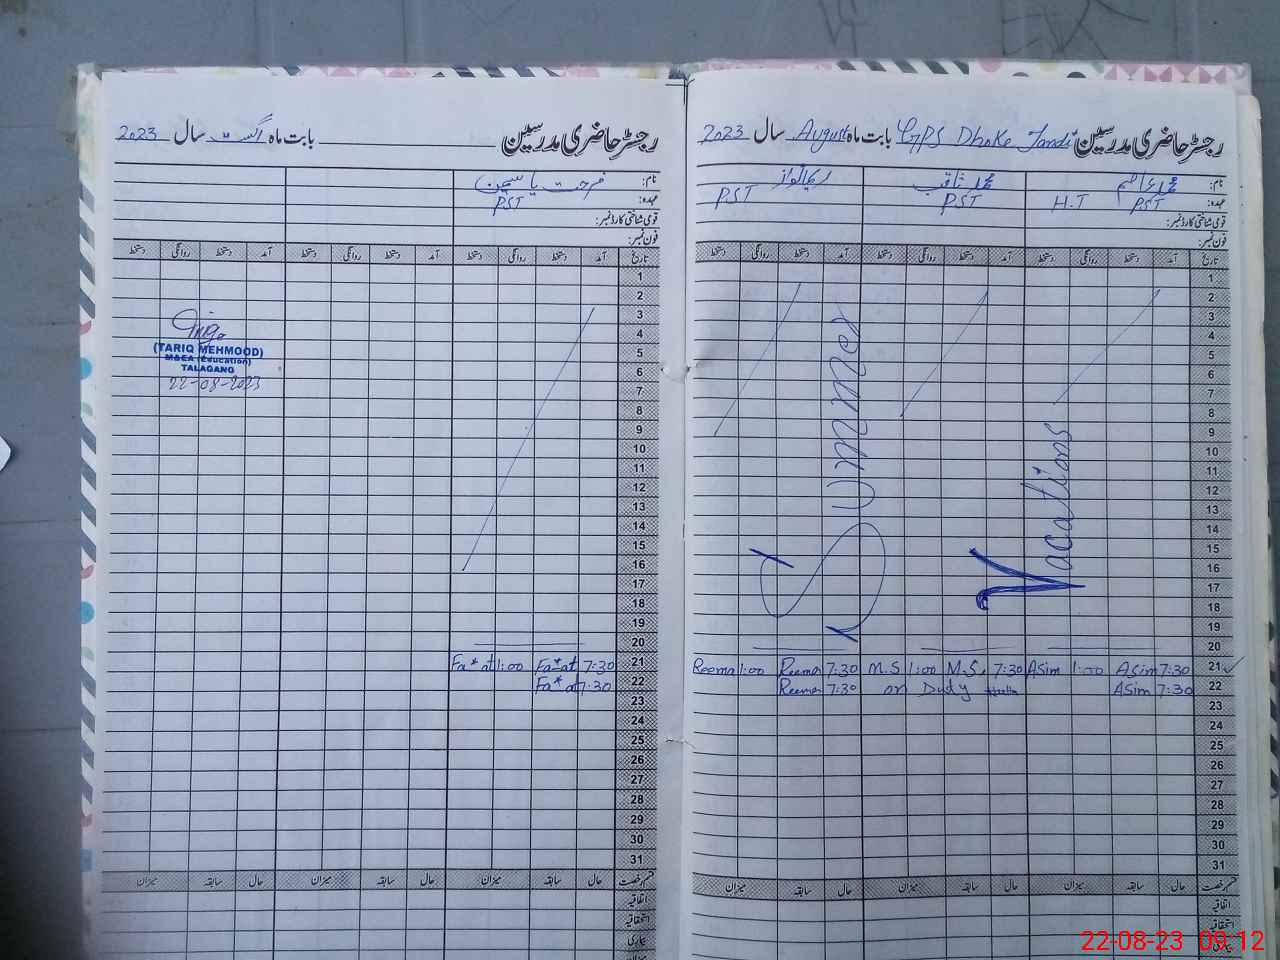 رجسٹر حاضری مدرسین GPS Dhoke Jandi بابت ماہ August سال 2023
نام: محمد عاصم محمد ثاقب
عہدہ: PST H.T PST PST
قومی شناختی کارڈ نمبر:
فون نمبر:
تاریخ آمد دستخط روانگی دستخط آمد دستخط روانگی دستخط آمد دستخط روانگی دستخط
1
2
3
4
5
6
7
8
9
10
11
12
13
14
15
16
17
18
19
20
Summer
Vacations
Reema 1:00 Reema 7:30 M.S 1:00 M.S. 7:30 Asim 1:00 Asim 7:30 21
Reema 7:30 on Duty Asim 7:30 22
23
24
25
26
27
28
29
30
31
قسم رخصت حال سابقہ میزان حال سابقہ میزان حال سابقہ میزان
اتفاقیہ
استحقاقیہ
بیماری
رجسٹر حاضری مدرسین بابت ماہ اگست سال 2023
نام: فرحت یاسمین
عہدہ: PST
قومی شناختی کارڈ نمبر:
فون نمبر:
تاریخ آمد دستخط روانگی دستخط آمد دستخط روانگی دستخط آمد دستخط روانگی دستخط
1
2
3
4
5
6
7
8
9
10
11
12
13
14
15
16
17
18
19
20
Fa*at 1:00 Fa*at 7:30 21
Fa*at 7:30 22
23
24
25
26
27
28
29
30
31
(TARIQ MEHMOOD)
M&EA (Education)
TALAGANG
22-08-2023
قسم رخصت حال سابقہ میزان حال سابقہ میزان حال سابقہ میزان
اتفاقیہ
استحقاقیہ
بیماری
22-08-23 09:12